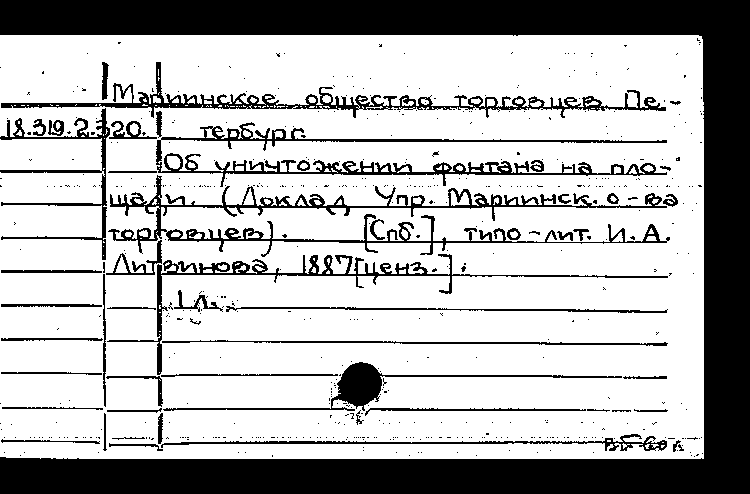 Мариинское общество торговцев Пе-
18.319.2.320. тербург.
Об уничтожении фонтана на пло-
щади. (Доклад Упр. Мариинск. о-ва
торговцев). [Спб.], типо-лит. И. А.
Литвинова, 1887 [ценз.].
1 л.